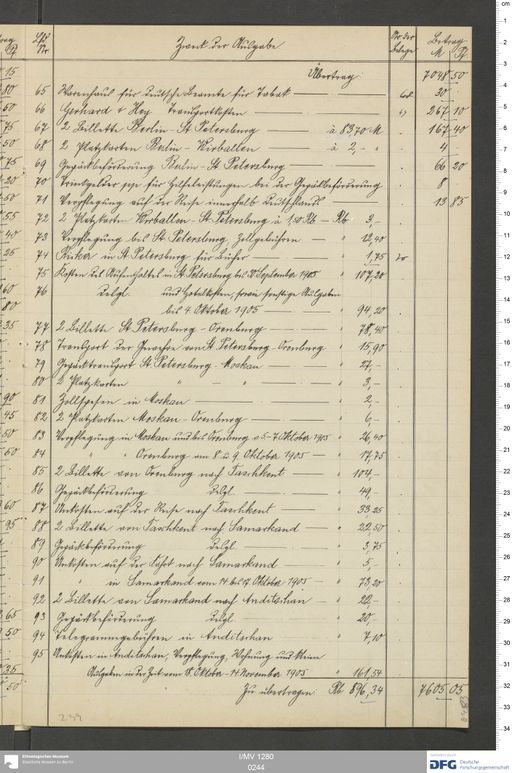 Lfd Nr Zweck der Ausgabe Nr der Belege Betrag M Pf
Übertrag 7048 50
65 Warenhaus für deutsche Beamte für Tabak 20 -
66 Gerhard & Hey Transportkosten 267 10
67 2 Billette Berlin - St Petersburg à 83,70 M 167 40
68 2 Platzkarten Berlin - Wirballen à 2,- " 4 -
69 Gepäckbeförderung Berlin - St. Petersburg 66 20
70 Trinkgelder für Hilfeleistungen bei der Gepäckbeförderung 8 -
71 Verpflegung auf der Reise innerhalb Deutschlands 13 85
72 2 Platzkarten Wirballen - St. Petersburg à 1,50 Rb - Rb 3,-
73 Verpflegung bis St Petersburg, Zollgebühren " 12,40
74 in St. Petersburg für Bücher " 1,75
75 Kosten des Aufenthaltes in St. Petersburg bis September 1905 " 107,20
76 desgl. und Hotelkosten, sowie sonstige Ausgaben
bis 4. Oktober 1905 " 94,20
77 2 Billette St. Petersburg - Orenburg " 78,40
78 Transport der Gewehre von St. Petersburg - Orenburg " 15,90
79 Gepäcktransport St. Petersburg - Moskau " 27,-
80 2 Platzkarten " - " " 3,-
81 Zollspesen in Moskau " 2,-
82 2 Platzkarten Moskau - Orenburg " 6,-
83 Verpflegung in Moskau und bis Orenburg v. 5-7. Oktober 1905 " 26,40
84 " " Orenburg am 8. u 9. Oktober 1905 " 17,75
85 2 Billette von Orenburg nach Taschkent " 104,-
86 Gepäckbeförderung desgl. " 49,-
87 Unkosten auf der Reise nach Taschkent " 33,25
88 2 Billette von Taschkent nach Samarkand " 22,50
89 Gepäckbeförderung desgl. " 3,75
90 Unkosten auf der Fahrt nach Samarkand " 5,-
91 " in Samarkand vom 14. bis 17. Oktober 1905 " 73,20
92 2 Billette von Samarkand nach Anditschan " 22,-
93 Gepäckbeförderung desgl. " 20,-
94 Telegrammgebühren in Anditschan " 7,10
95 Unkosten in Anditschan, Verpflegung, Wohnung und kleine
Ausgaben in der Zeit vom 18. Oktober - 14. November 1905 " 161,54
Zu übertragen Rb 896,34 7605 05
I/MV 1280
0244
Ethnologisches Museum
Staatliche Museen zu Berlin
DFG Deutsche Forschungsgemeinschaft